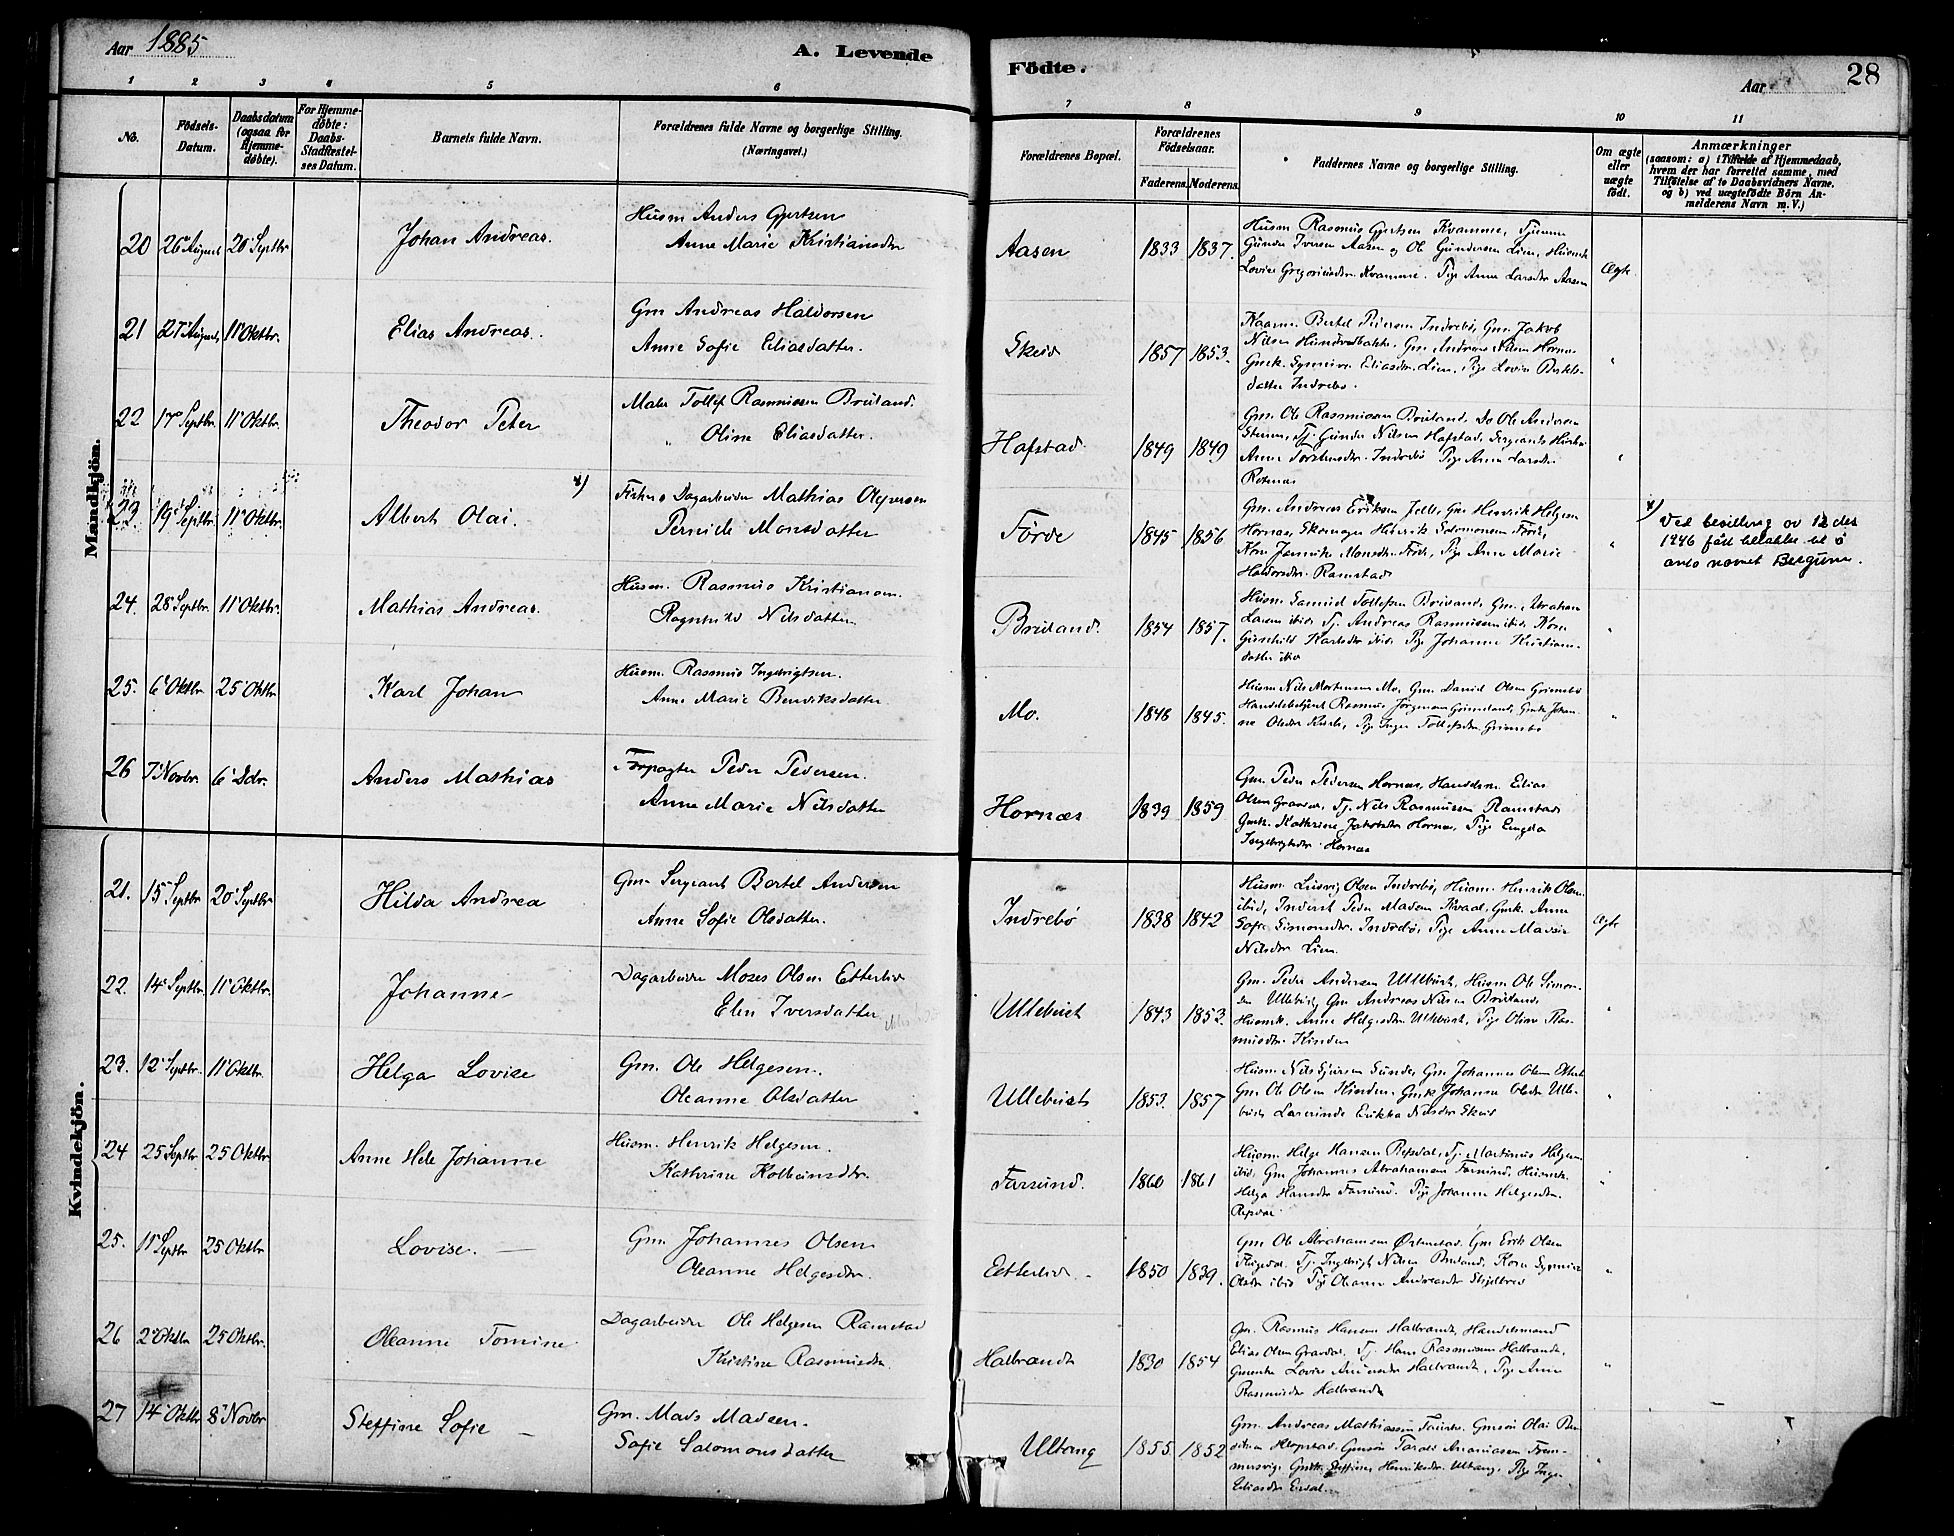 Aar 1885
A. Levende
Födte.
Aar
28
1 2 3 4 5 6
7 8 9 10 11
No.
Födsels-
Datum.
Daabsdatum
(ogsaa for
Hjemme-
döbte).
For Hjemme-
döbte:
Daabs-
Stadfæstel-
ses Datum.
Barnets fulde Navn.
Forældrenes fulde Navne og borgerlige Stilling.
(Næringsvei.)
Forældrenes Bopæl.
Forældrenes
Födselsaar.
Faderens. Moderens.
Faddernes Navne og borgerlige Stilling.
Om ægte
eller
uægte
födt.
Anmærkninger
(saasom: a) i Tilfælde af Hjemmedaab,
hvem der har forrettet samme, med
Tilföielse af to Daabsvidners Navne.
og b) ved uægtefödte Börn An-
melderens Navn m. V.)
Mandkjön.
20 26 August 20 Septbr Johan Andreas.
Husm Anders Gjertsen
Anne Marie Kristiansdtr
Aasen 1833 1837.
Husm Rasmus Gjertsen Kvamme,
Gunder Iversen Aasen og Ole Gundersen Lien, Husmk
Lovise Gregoriusdtr Kvamme. Pige Anne Larsdtr Aasen
Ægte
21 27 August 11 Oktbr. Elias Andreas.
Gm Andreas Haldorsen
Anne Sofie Eliasdatter.
Skeid 1857 1853.
Bertel Indrebö, Gm. Jakob
Nilsen Gm Andreas Nilsen Hornæs
Gmk. Synneve Eliasdtr. Lien, Pige Lovise Bertels-
datter Indrebö.
22 17 Septbr. 11 Oktbr. Theodor Peter
Maler Tollef Rasmussen Bruland.
Oline Eliasdatter.
Hafstad 1849 1849
Gm. Ole Rasmussen Bruland, Do Ole Andersen
Tj. Gunder Nilsen Hafstad, Sergeants Hustru
Anne Indrebö Pige Anne Larsdtr.
23. 19 Septbr. 11 Oktbr. Albert Olai.
x) Dagarbeider Mathias Olai
Pernille Monsdatter
Förde 1845 1856
Gm. Andreas Eriksen Gm Henrik Helgesen
Hornæs, Skomager Henrik Salomonsen Förde,
Kone Jannike Monsdtr. Förde, Pige Anne Marie
Haldorsdtr. Ramstad
x) Ved bevilling av 12 des
1946 fått tilladelse til å
anta navnet
24. 28 Septbr. 11 Oktbr. Mathias Andreas.
Husm. Rasmus Kristiansen.
Ragnhild Nilsdatter
Bruland. 1854 1857.
Husm. Samuel Tollefsen Bruland, Gm. Abraham
Larsen ibid Tj. Andreas Rasmussen ibid Kone
Karlsdtr ibid Pige Johanne Kristians-
datter ibid
25. 6 Oktbr. 25 Oktbr Karl Johan
Husm. Rasmus Ingebrigtsen.
Anne Marie Bendiksdatter.
Mo. 1848 1845.
Husm Nils Mortensen Mo, Gm. David Olsen Grimsbö
Handelsbetjent Rasmus Jörgensen Gmk Johan-
ne Olsdtr Pige Inger Tollefsdtr Grimsbö
26 7 Novbr. 6 Dcbr. Anders Mathias
Forpagter Peder Pedersen.
Anne Marie Nilsdatter
Hornæs 1839 1859
Gm. Peder Pedersen Hornæs, Handelsm. Elias
Olsen Gravdal, Tj. Nils Rasmussen Ramstad
Gmk. Kathrine Jakobsdtr Hornæs, Pige
Ingebrigtsdtr Hornæs
Kvindekjön.
21. 15 Septbr 20 Septbr Hilda Andrea
Gm. Sergeant Bertel Andersen
Anne Sofie Olsdatter.
Indrebö 1838 1842
Husm. Ludvig Olsen Indrebö, Husm. Henrik Olsen
ibid, Inderst Peder Madsen Kvaal, Gmk. Anne
Sofie Simonsdtr. Indrebö, Pige Anne Marie
Nilsdtr Lien.
Ægte
22. 14 Septbr. 11 Oktbr. Johanne
Dagarbeider Moses Olsen Etterlid
Elen Iversdatter
Ullebust 1843 1853.
Gm. Peder Andersen Ullebust, Husm Ole Simon-
sen Ullebust, Gm Andreas Nilsen Bruland,
Husmk. Anne Helgesdtr Ullebust, Pige Oline Ras-
musdtr.
23. 12 Septbr. 11 Oktbr. Helga Lovise
Gm. Ole Helgesen.
Oleanne Olsdatter
Ullebust 1853. 1857
Husm Nils Sjursen Sunde, Gm Johannes Olsen Etterlid
Gm. Ole Olsen Gmk Johanne Olsdtr Ulle-
bust, Nilsdtr Skeid
24 25 Septbr 25 Oktbr Anne Hele Johanne
Husm. Henrik Helgesen.
Kathrine Kolbeinsdtr.
Farsund. 1860 1861
Husm Helge Hansen Refsdal, Tj. Martinus Helgesen
ibid, Gm Johannes Abrahamsen Farsund, Husmk.
Helga Hansdtr Farsund. Pige Johanne Helgesdtr.
Refsdal
25. 11 Septbr 25 Oktbr Lovise. —
Gm. Johannes Olsen
Oleanne Helgesdtr.
Etterlid. 1850 1839.
Gm Ole Abrahamsen Gm Erik Olsen
Tj. Ingebrigt Nilsen Bruland, Kone Synneve
Olsdtr ibid Pige Oleanne Andreasdtr
26 2 Oktbr 25 Oktbr. Oleanne Tomine
Dagarbeider Ole Helgesen Ramstad
Kristine Rasmusdtr.
Halbrandt 1830 1854
Gm. Rasmus Hansen Halbrandt, Handelsmand
Elias Olsen Gravdal, Tj. Hans Rasmussen Halbrandt,
Lovise Halbrandt, Pige Anne
Rasmusdtr Halbrandt
27 14 Oktbr 8 Novbr Steffine Sofie —
Gm. Mads Madsen.
Sofie Salomonsdatter
Ultang 1855. 1852
Gm. Andreas Mathiassen Gmsön Olai
Gmsön Ananiassen
Gmk Steffine Henriksdtr. Ultang, Pige Inger
Eliasdtr